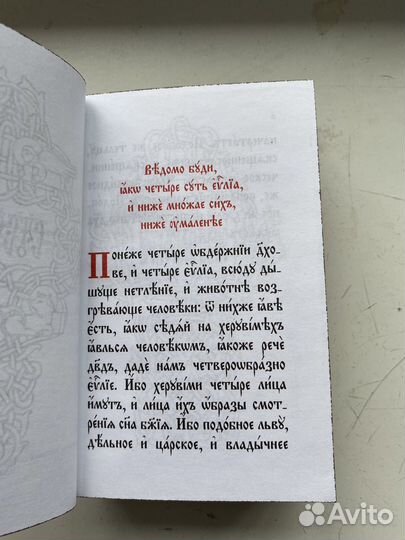 Вѣ́домо бꙋ́ди,
ꙗ҆́кѡ четы́ре сꙋ́ть є҆ѵⷢ҇лїа,
и҆ ни́же мно́жае си́хъ,
ни́же ᲂу҆мале́нѣе
Поне́же четы́ре ѡ҆бдержні́и дх҃о-
ве, и҆ четы́ре є҆ѵⷢ҇лїа, всю́дꙋ ды́-
шꙋще нетлѣ́нїе, и҆ живо́тнѣ воз-
грѣва́юще человѣ́ки: ѿ ни́хже ꙗ҆́вѣ
є҆́сть, ꙗ҆́кѡ сѣдѧ́й на херꙋві́мѣхъ
ꙗ҆́вльсѧ человѣ́кѡмъ, ꙗ҆́коже речѐ
дв҃дъ, дадѐ на́мъ четверооб́разно
є҆ѵⷢ҇лїе. И҆́бо херꙋві́ми четы́ре лица̀
и҆́мꙋтъ, и҆ лица̀ и҆́хъ ѡ҆́бразы смот-
ре́нїѧ сн҃а бж҃їѧ. И҆́бо подо́бное льву̀,
дѣ́льное и҆ ца́рское, и҆ влады́чнее
Avito